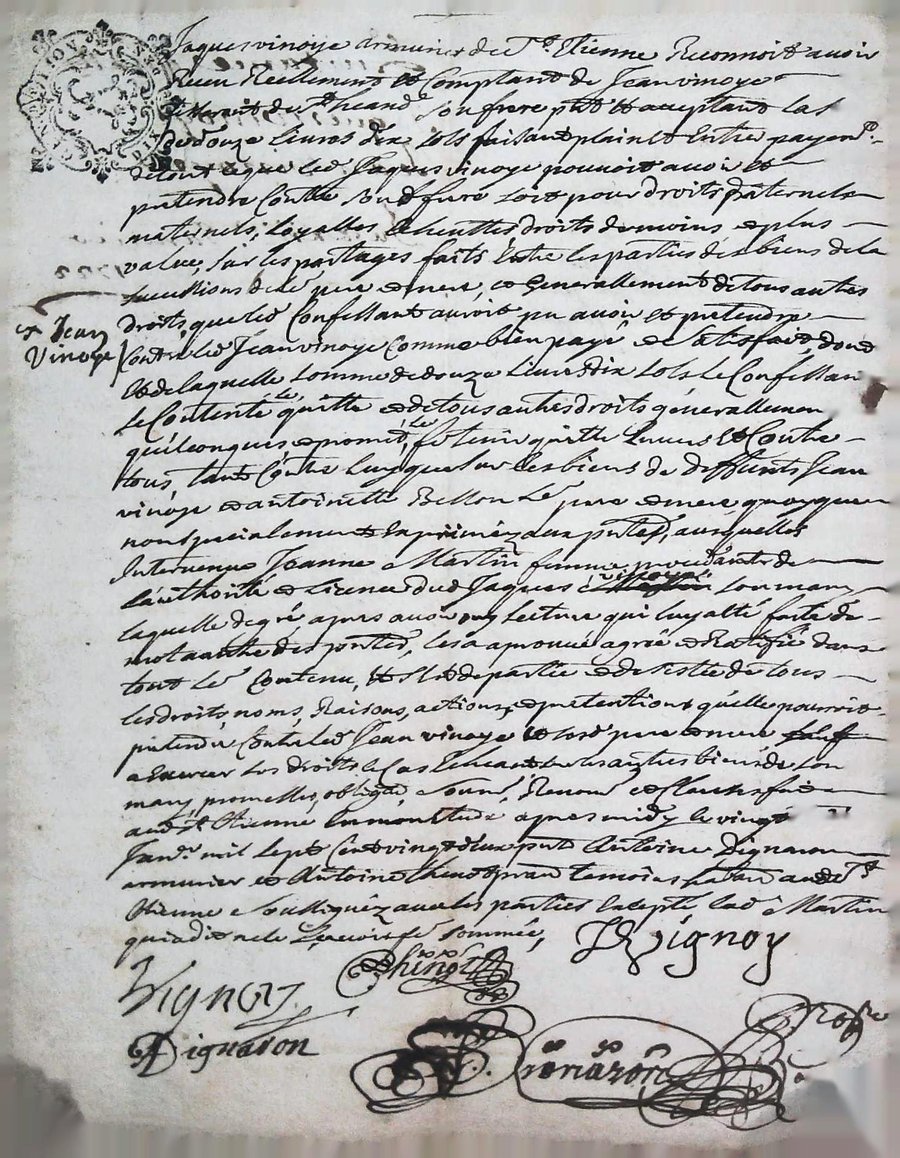 Jaques vinoye armurier de St Etienne Reconnoit avoir
Receu Reellement et Comptant de Jean vinoye
de St heand son frere pnt et acceptant la
de douze livres dix sols faisant plain et Entier payemt
de tout ce que led Jaques vinoye pouvoit avoir et
pretendre Contre sond frere soit pour droits paternels
maternels, Loyalles Echeuttes droits de moins e plus
value, sur les partages faits Entre les parties des biens de la
succession de Le pere e mere, et Generallement de tous autres
droits, que led Confessant auroit pu avoir et pretendre
+ Jean
Vinoye
Contre led Jean vinoye Comme bien payé e satisfait, dont
et de laquelle somme de douze livres dix sols le Confessan
se Contente le quitte e de tous autres droits generallemen
quelconques e promet le f tenir quitte Envers et Contre
tous, tant Contre luy que sur les biens de deffunts Jean
vinoye et antoinette Bellon Le pere e mere quoyque
non specialement Exprimez aux pntes, ausquelles
Intervenue Jeanne Martin femme procedante de
l'authorité e Licence dud Jaques vinoye son mary
laquelle de gré apres avoir ouy Lecture qui luy a été faite de
mot a autre des pntes, les a aprouvé agréé e Ratifié dans
tout Le Contenu, et s'est departie e desistée de tous
les droits, noms, Raisons, actions, e pretentions qu'elle pourroit
pretendre Contre led Jean vinoye et sesd pere e mere sauf
a Exercer ses droits le Cas Echeant sur les autres biens de son
mary, promesses, obligaõ, soumõ, Renonõ et Clauses fait
aud St Etienne En mon Etude apres midy le vingt
Janvr mil sept Cent vingt deux pnt Antoine Dignaron
armurier et Antoine temoins aud St
Etienne e Soussignéz avec les parties Excepté lad Martin
qui a dit ne le sçavoir de sommée,
J Vignoy
Thinet
Vignoy
A Dignaron
Ronazon